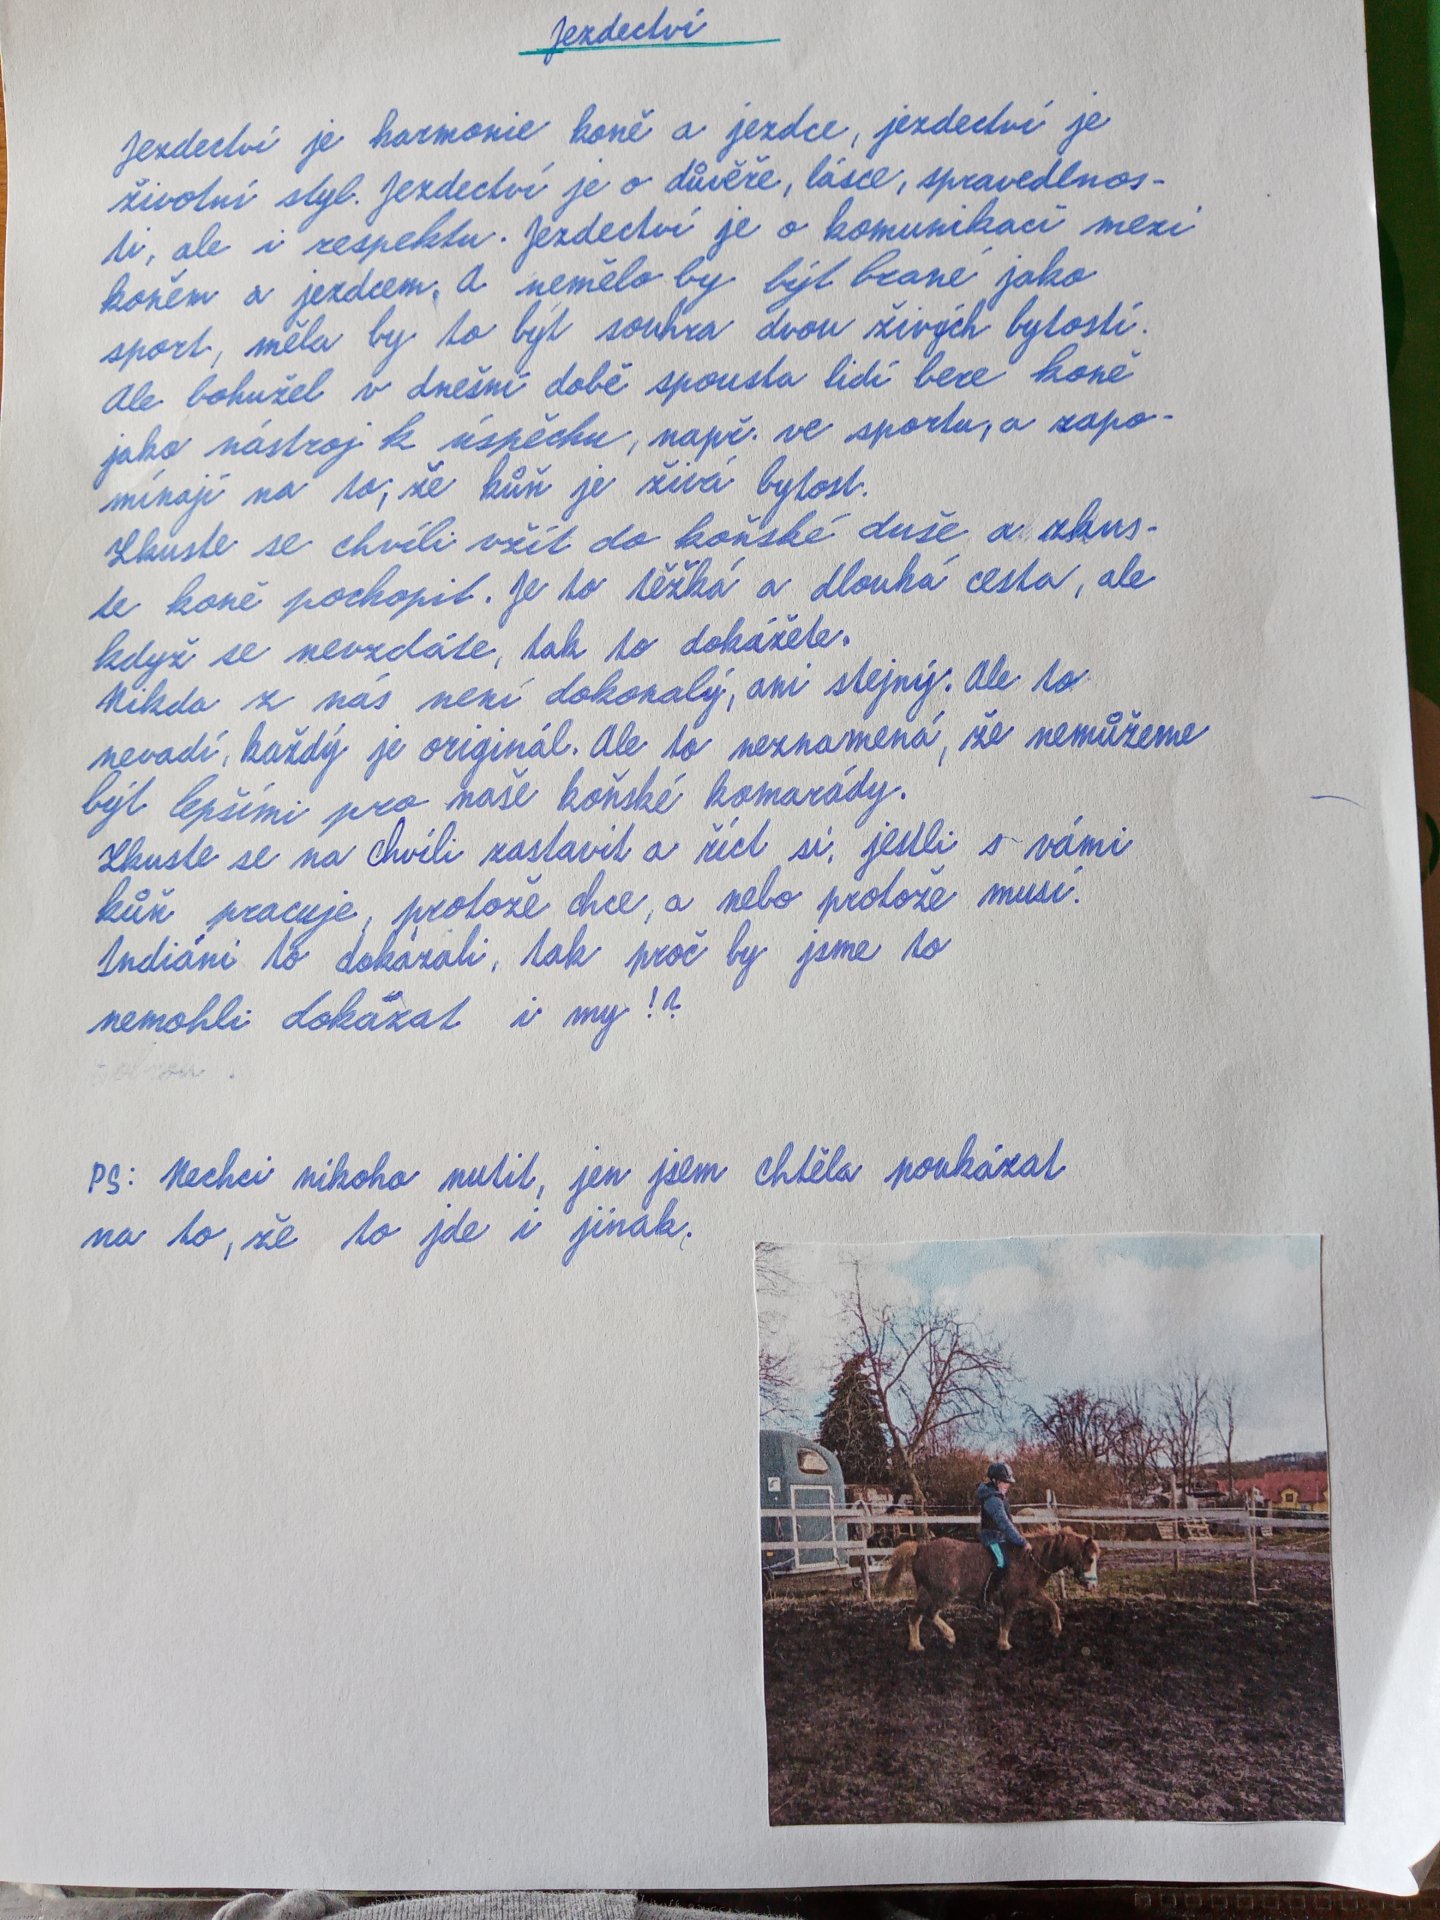 Jezdectví
Jezdectví je harmonie koně a jezdce, jezdectví je
životní styl. Jezdectví je o důvěře, lásce, spravedlnos-
ti, ale i respektu. Jezdectví je o komunikaci mezi
koněm a jezdcem. A nemělo by být brané jako
sport, měla by to být souhra dvou živých bytostí.
Ale bohužel v dnešní době spousta lidí bere koně
jako nástroj k úspěchu, např. ve sportu, a zapo-
mínají na to, že kůň je živá bytost.
Zkuste se chvíli vžít do koňské duše a zkus-
te koně pochopit. Je to těžká a dlouhá cesta, ale
když se nevzdáte, tak to dokážete.
Nikdo z nás není dokonalý, ani stejný. Ale to
nevadí, každý je originál. Ale to neznamená, že nemůžeme
být lepšími pro naše koňské komarády.
Zkuste se na chvíli zastavit a říct si, jestli s vámi
kůň pracuje, protože chce, a nebo protože musí.
Indiáni to dokázali, tak proč by jsme to
nemohli dokázat i my!?
PS: Nechci nikoho nutit, jen jsem chtěla poukázat
na to, že to jde i jinak.